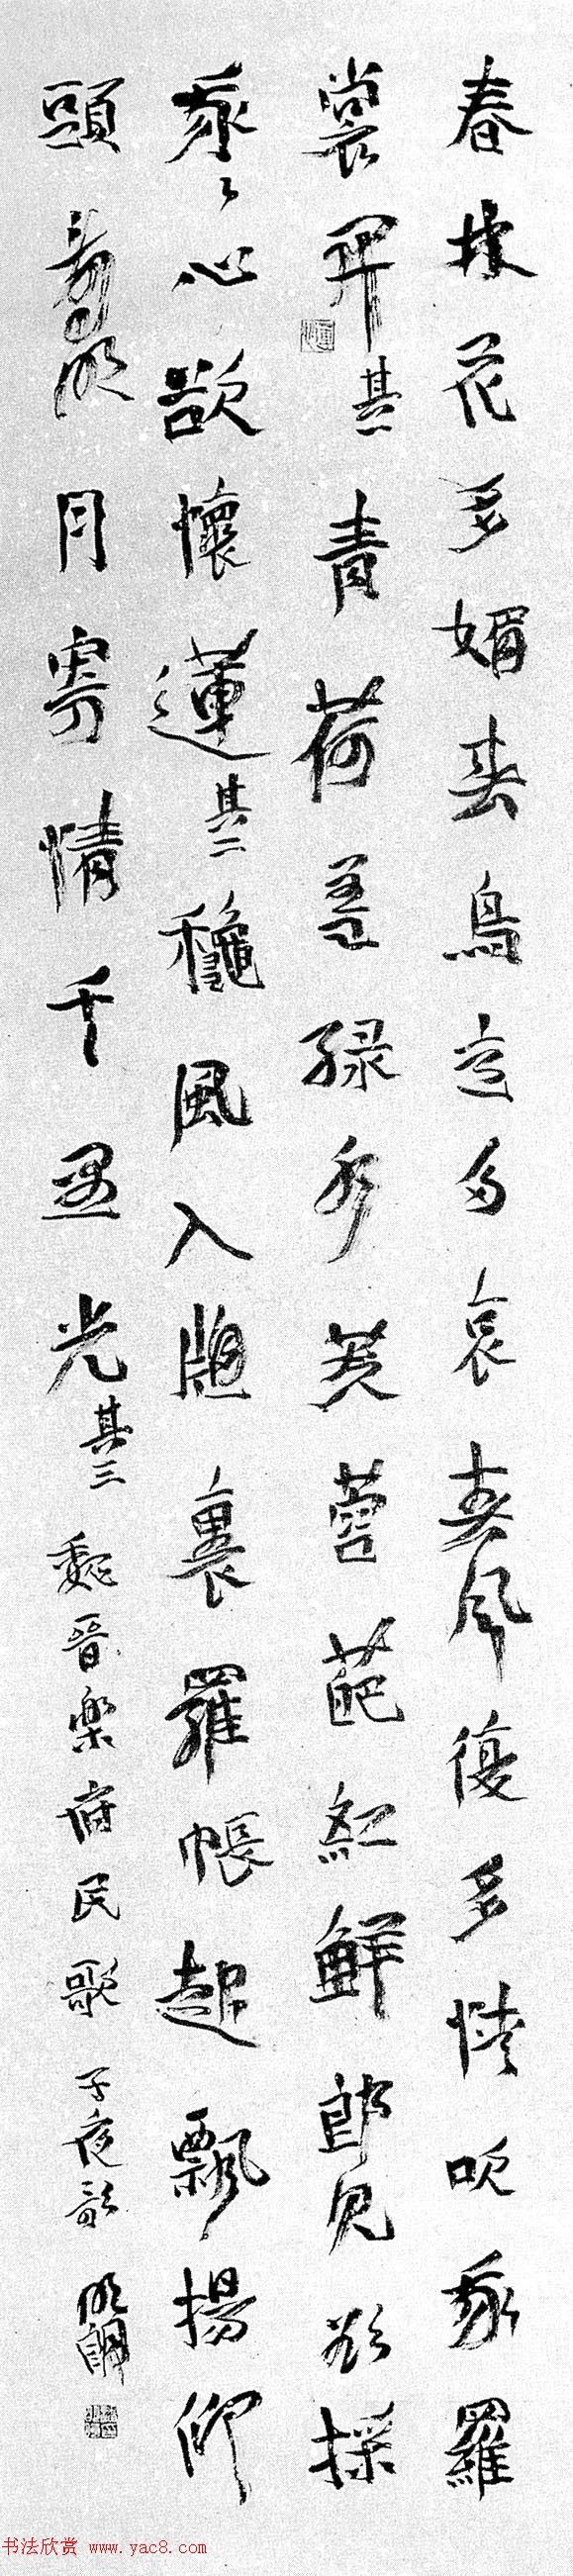 春林花多媚春鳥意多哀春風復多情吹我羅
裳開其一青荷蓋綠水芙蓉葩紅鮮郎見欲採
我々心欲懷蓮其二穐風入牕裏羅帳起飄揚仰
頭看明月寄情千里光其三魏晉楽府民歌子夜歌
书法欣赏 www.yac8.com